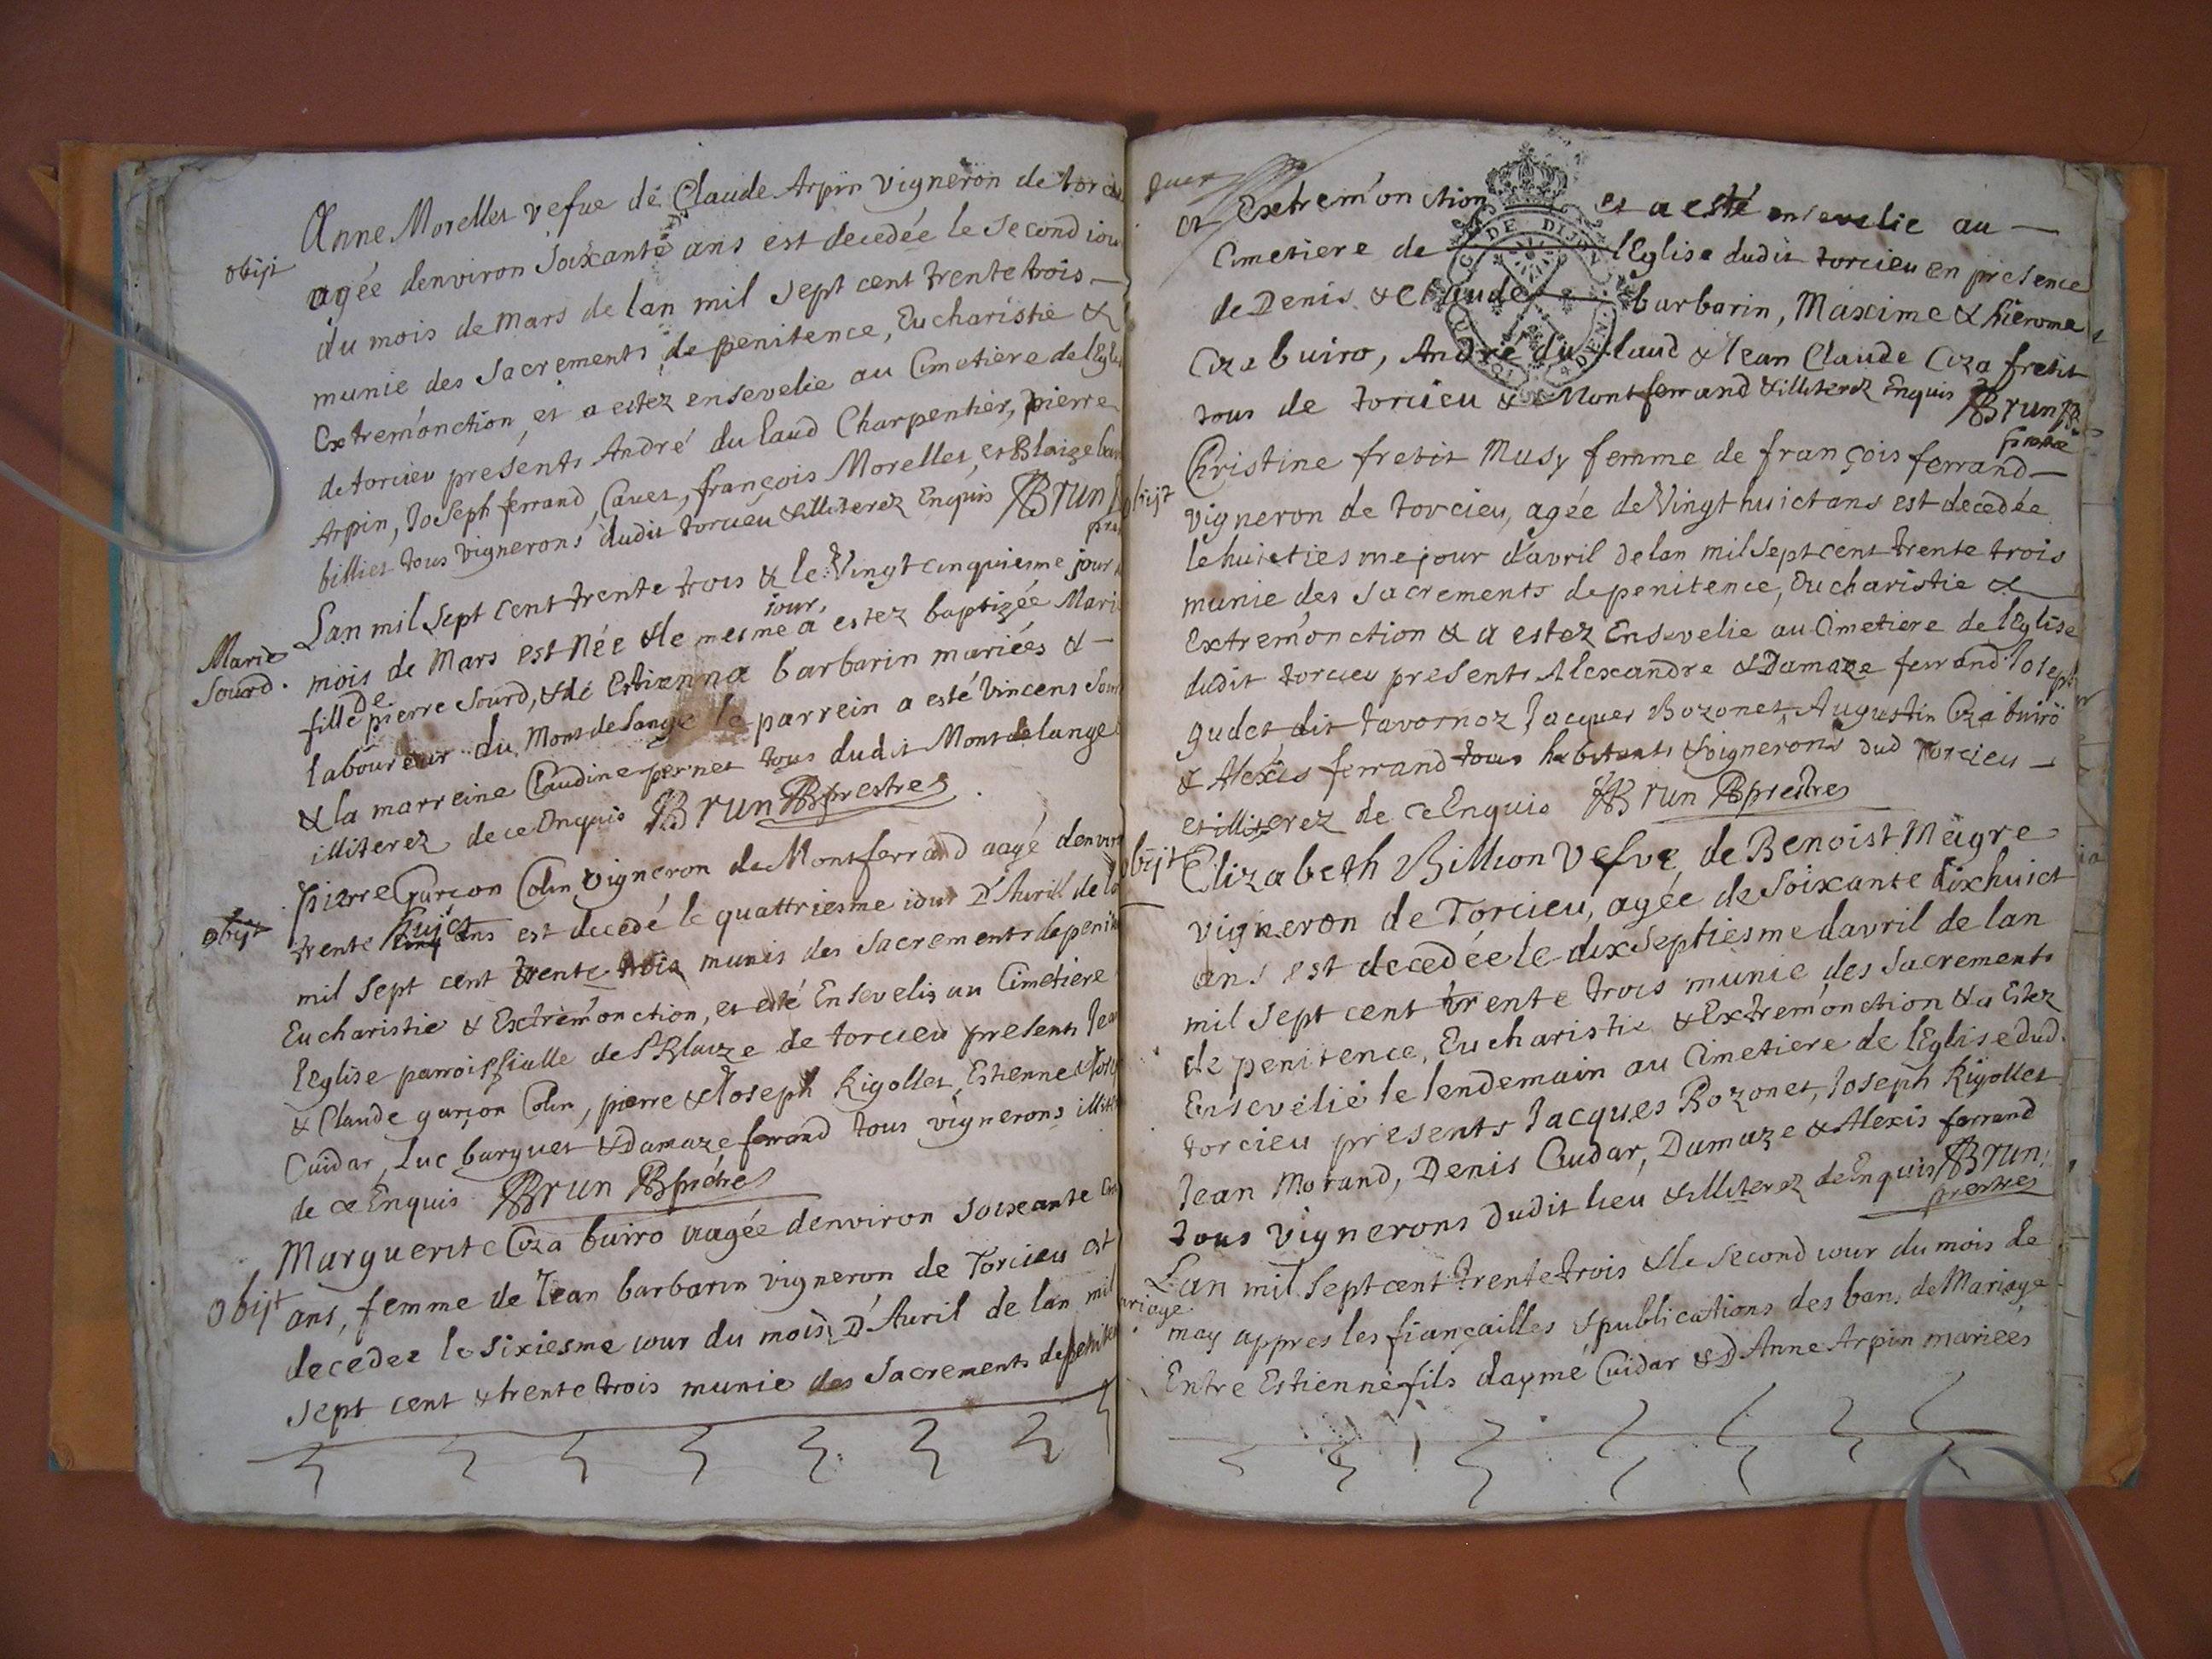 Anne Morellet vefue de Claude Arpin vigneron de torcieu
obijt
agée denviron soixante ans est decedée le second iour
du mois de mars de lan mil sept cent trente trois —
munie des Sacrements de penitence, Eucharistie &
Extrem'onction, et a estez ensevelie au Cimetiere de lEglise
de torcieu presents André du laud Charpentier, pierre
Arpin, Joseph ferrand, Cavet, françois Morellet, et Blaize
billiet tous vignerons dudit torcieu & illiterez Enquis Brun
Lan mil sept cent trente trois & le Vingt cinquiesme jour
Marie Sourd.
mois de Mars est Née & le mesme iour, a estez baptizée Marie
fille de pierre Sourd, & de Estienna barbarin mariées & —
laboureur du Mont de lange le parrein a esté Vincens Sourd
& la marreine Claudine pernet tous dudit Mont de lange
illiterez de ce Enquis Brun prestre
pierre Garçon Colin vigneron de Montferrand aagé denviron
obijt
trente huict ans est decedé le quattriesme iour D'Auril de
mil sept cent trente trois munis des Sacrements de
Eucharistie & Extrem'onction, et esté Ensevelis au Cimetiere
lEglise parroissialle de St Blaize de torcieu presents Jean
& Claude garçon Colin, pierre & Joseph Rigollet, Estienne
Cuidar, Luc barquet & Damaze ferrand tous vignerons
de ce Enquis Brun prêtre
Marguerite Coza buiro aagée denviron soixante
Obijt
ans, femme de Jean barbarin vigneron de Torcieu est
decedée le sixiesme iour du mois D'Auril de lan mil
sept cent & trente trois munie des Sacrements de
et Extrem'onction et a esté ensevelie au —
DE DIJON
Cimetiere de lEglise dudit torcieu en presence
de Denis & Claude barbarin, Maxime & hierome
Coza buiro, André du laud & Jean Claude Coza fretit
tous de torcieu & Montferrand & illiterez Enquis Brun
prestre
Christine fretit Musy femme de françois ferrand —
obijt
vigneron de torcieu, agée de Vingt huict ans est decedée
le huictiesme jour d'avril de lan mil sept cent trente trois
munie des Sacrements de penitence, Eucharistie &
Extrem'onction & a estez Ensevelie au Cimetiere de lEglise
dudit torcieu presents Alexandre & Damaze ferrand Joseph
gudet dit tavornoz Jacques Bozonet, Augustin Coza buiro
& Alexis ferrand tous habitants & vignerons dud Torcieu —
et illiterez de ce Enquis Brun prestre
obijt
Elizabeth Billion Vefve de Benoist Mégre
vigneron de Torcieu, agée de Soixante dix huict
ans est decedée le dix Septiesme davril de lan
mil sept cent trente trois munie des Sacrements
de penitence, Eucharistie & Extrem'onction & a Estez
Ensevelie le lendemain au Cimetiere de lEglise dud.
torcieu presents Jacques Bozonet, Joseph Rigollet
Jean Morand, Denis Cuidar, Damaze & Alexis ferrand
tous vignerons dudit lieu & illiterez de Enquis Brun
prestre
Lan mil Sept cent trente trois & le second iour du mois de
may appres les fiançailles & publications des bans de Mariage
Entre Estienne fils daymé Cuidar & D'Anne Arpin mariées